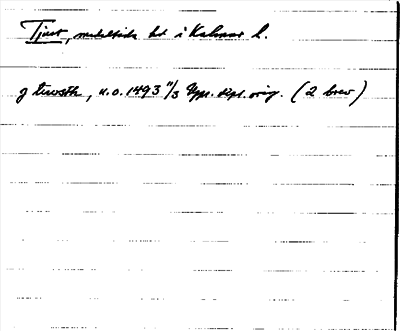 Tjust, medeltida hd i Kalmar l.
j tiwsth, u.o. 1493 11/3 Upps. dipl. orig. (2 brev)